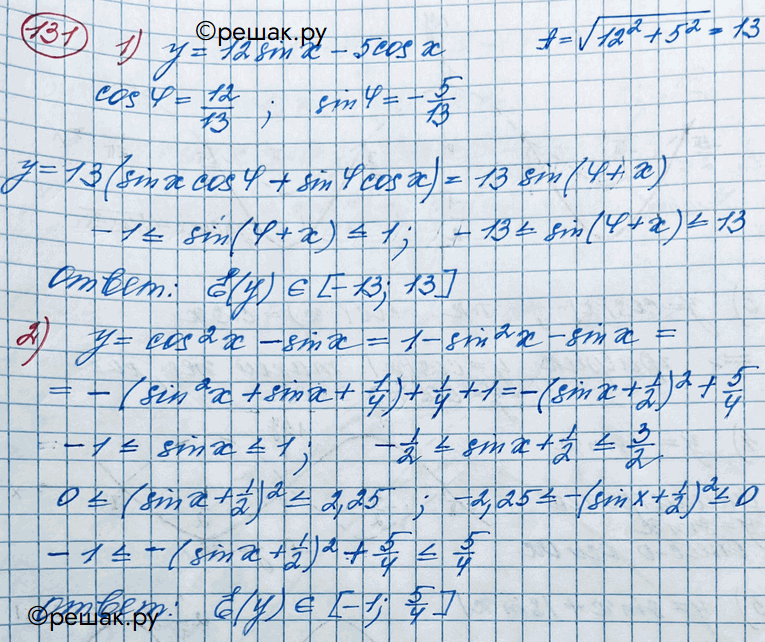 ©решак.ру
131 1) y = 12 sin x − 5 cos x    A = √(12² + 5²) = 13
cos φ = 12/13 ;  sin φ = − 5/13
y = 13 (sin x cos φ + sin φ cos x) = 13 sin (φ + x)
−1 ≤ sin(φ + x) ≤ 1 ;  −13 ≤ sin(φ + x) ≤ 13
Ответ: E(y) ∈ [−13; 13]
2) y = cos²x − sin x = 1 − sin²x − sin x =
= −(sin²x + sin x + 1/4) + 1/4 + 1 = −(sin x + 1/2)² + 5/4
−1 ≤ sin x ≤ 1 ;  −1/2 ≤ sin x + 1/2 ≤ 3/2
0 ≤ (sin x + 1/2)² ≤ 2,25 ;  −2,25 ≤ −(sin x + 1/2)² ≤ 0
−1 ≤ −(sin x + 1/2)² + 5/4 ≤ 5/4
Ответ: E(y) ∈ [−1; 5/4]
©решак.ру